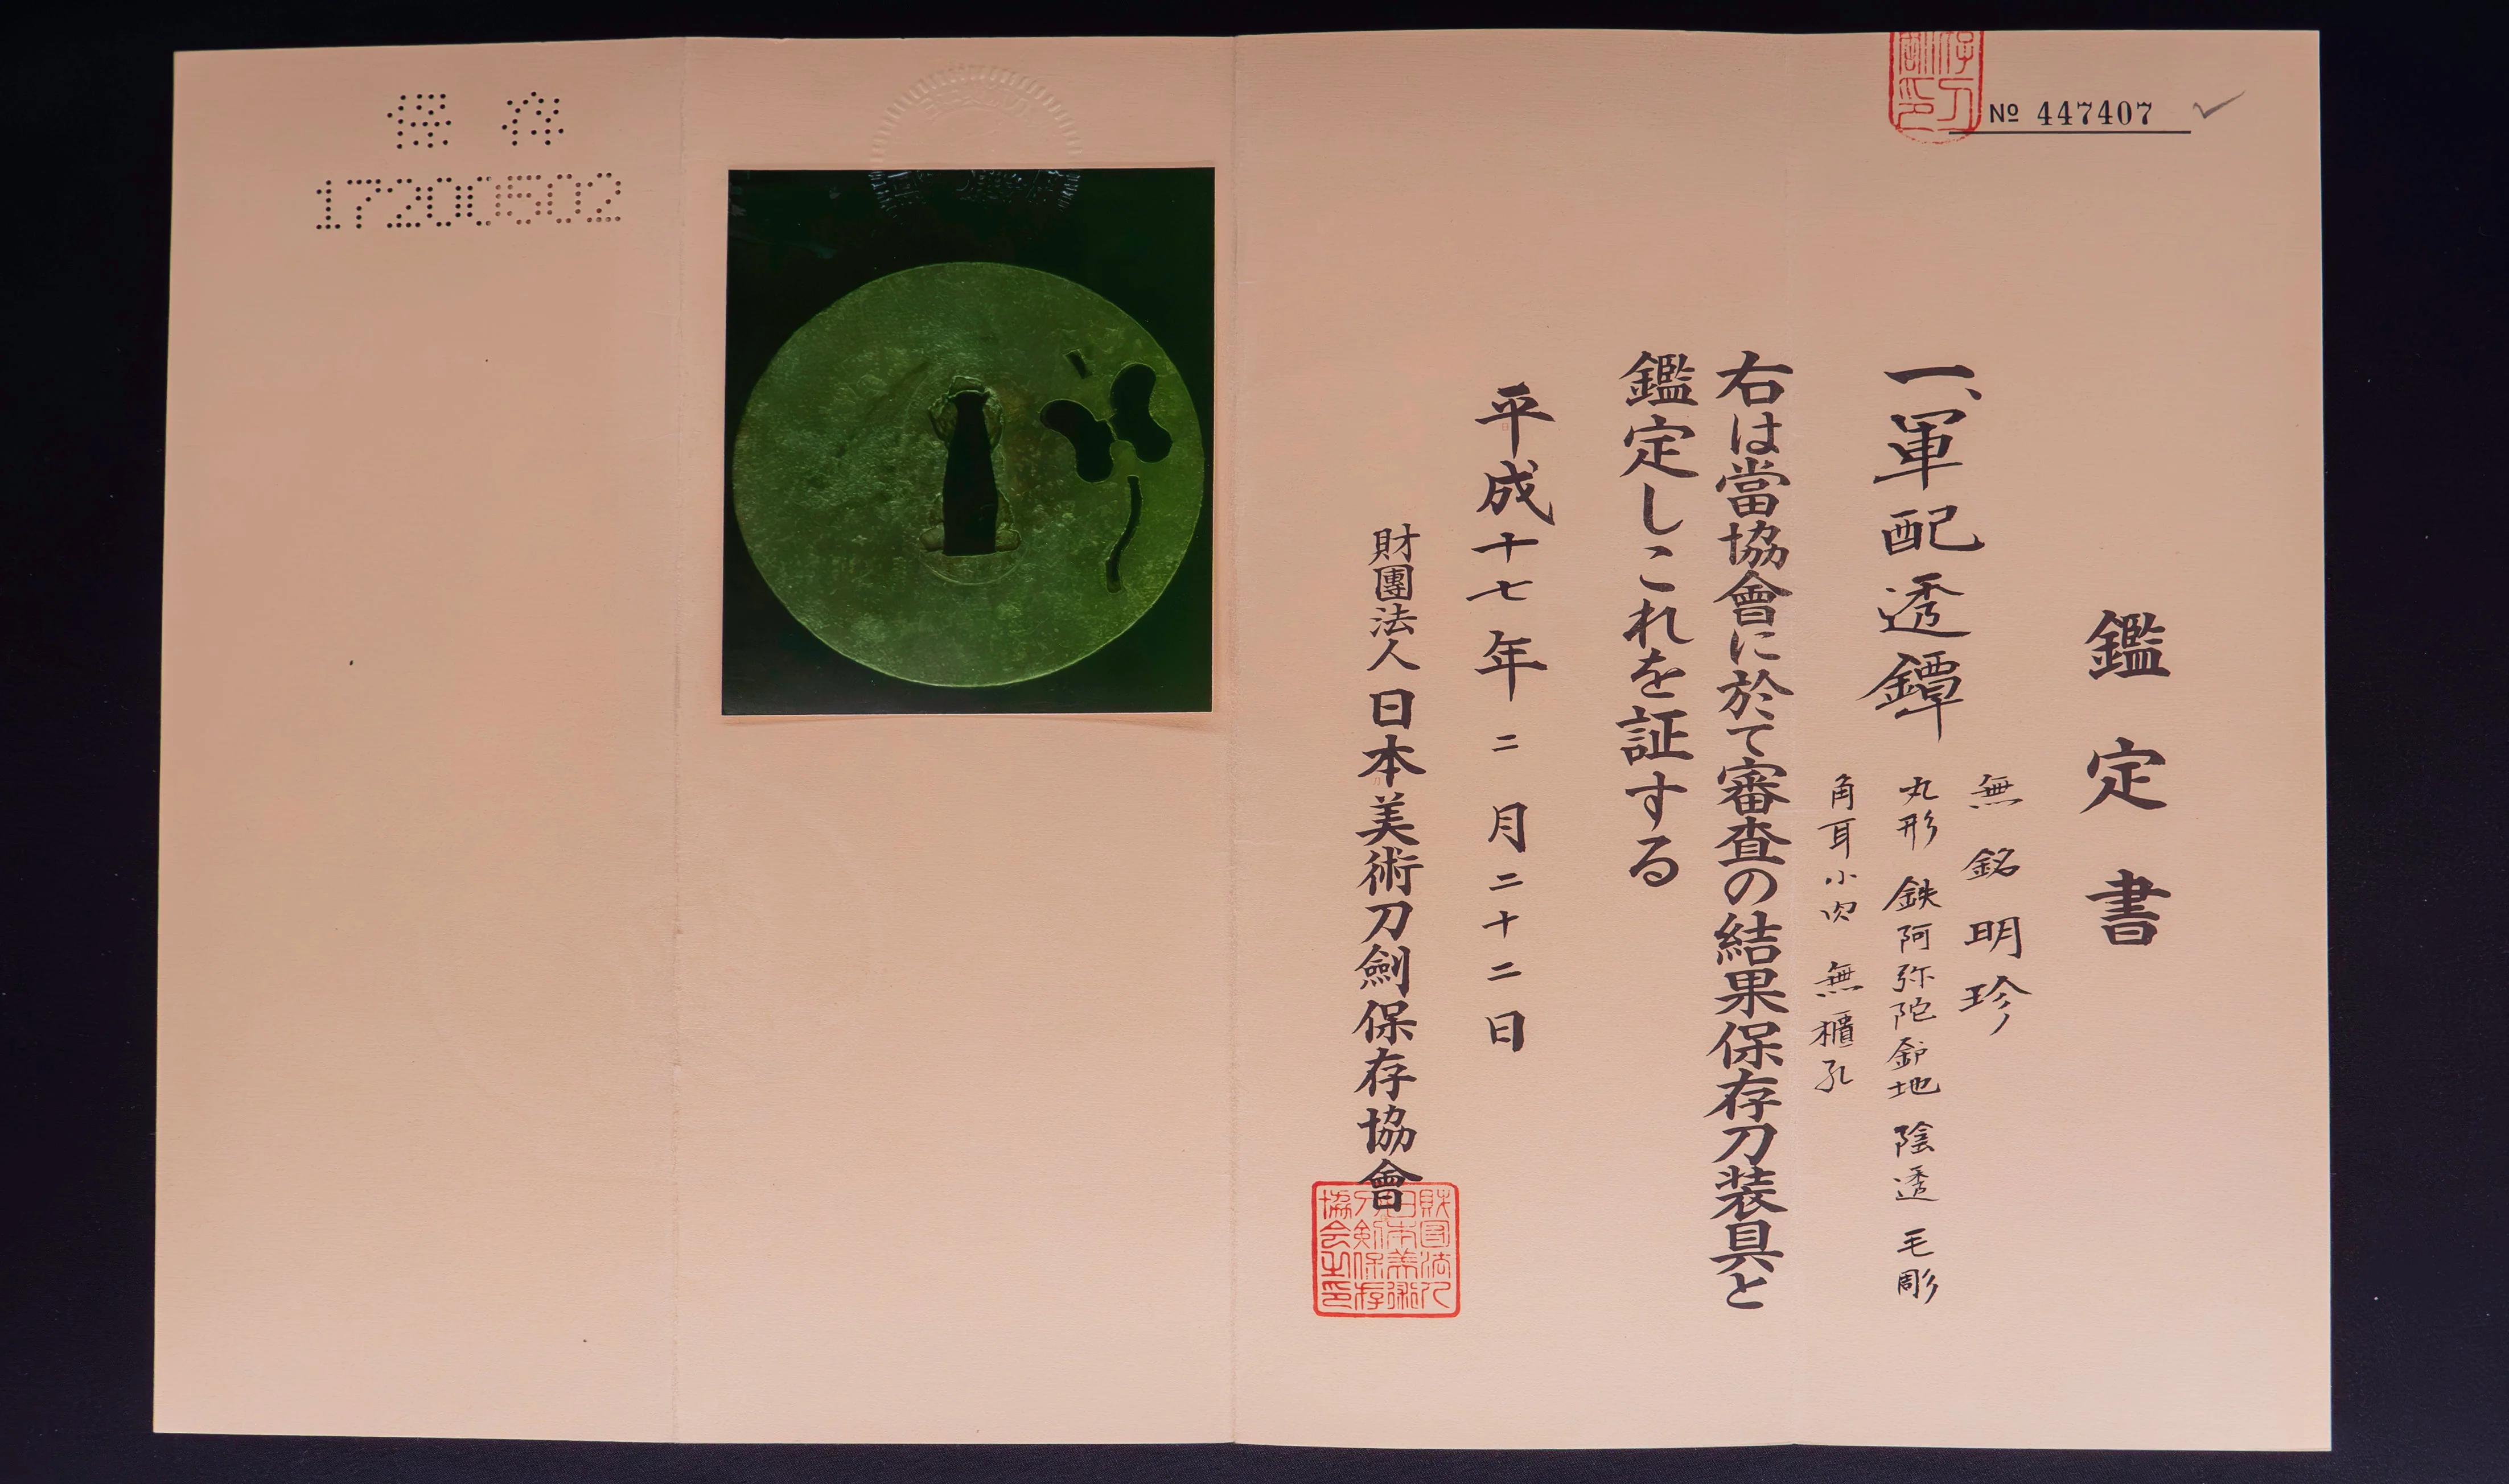 № 447407
鑑定書
一、軍配透鐔
無銘 明珍
丸形 鉄阿弥陀鑢地 陰透 毛彫
角耳小肉 無櫃孔
右は當協會に於て審査の結果保存刀装具と
鑑定しこれを証する
平成十七年二月二十二日
財團法人日本美術刀劍保存協會
財団法人日本美術刀剣保存協会之印
保存
17200502